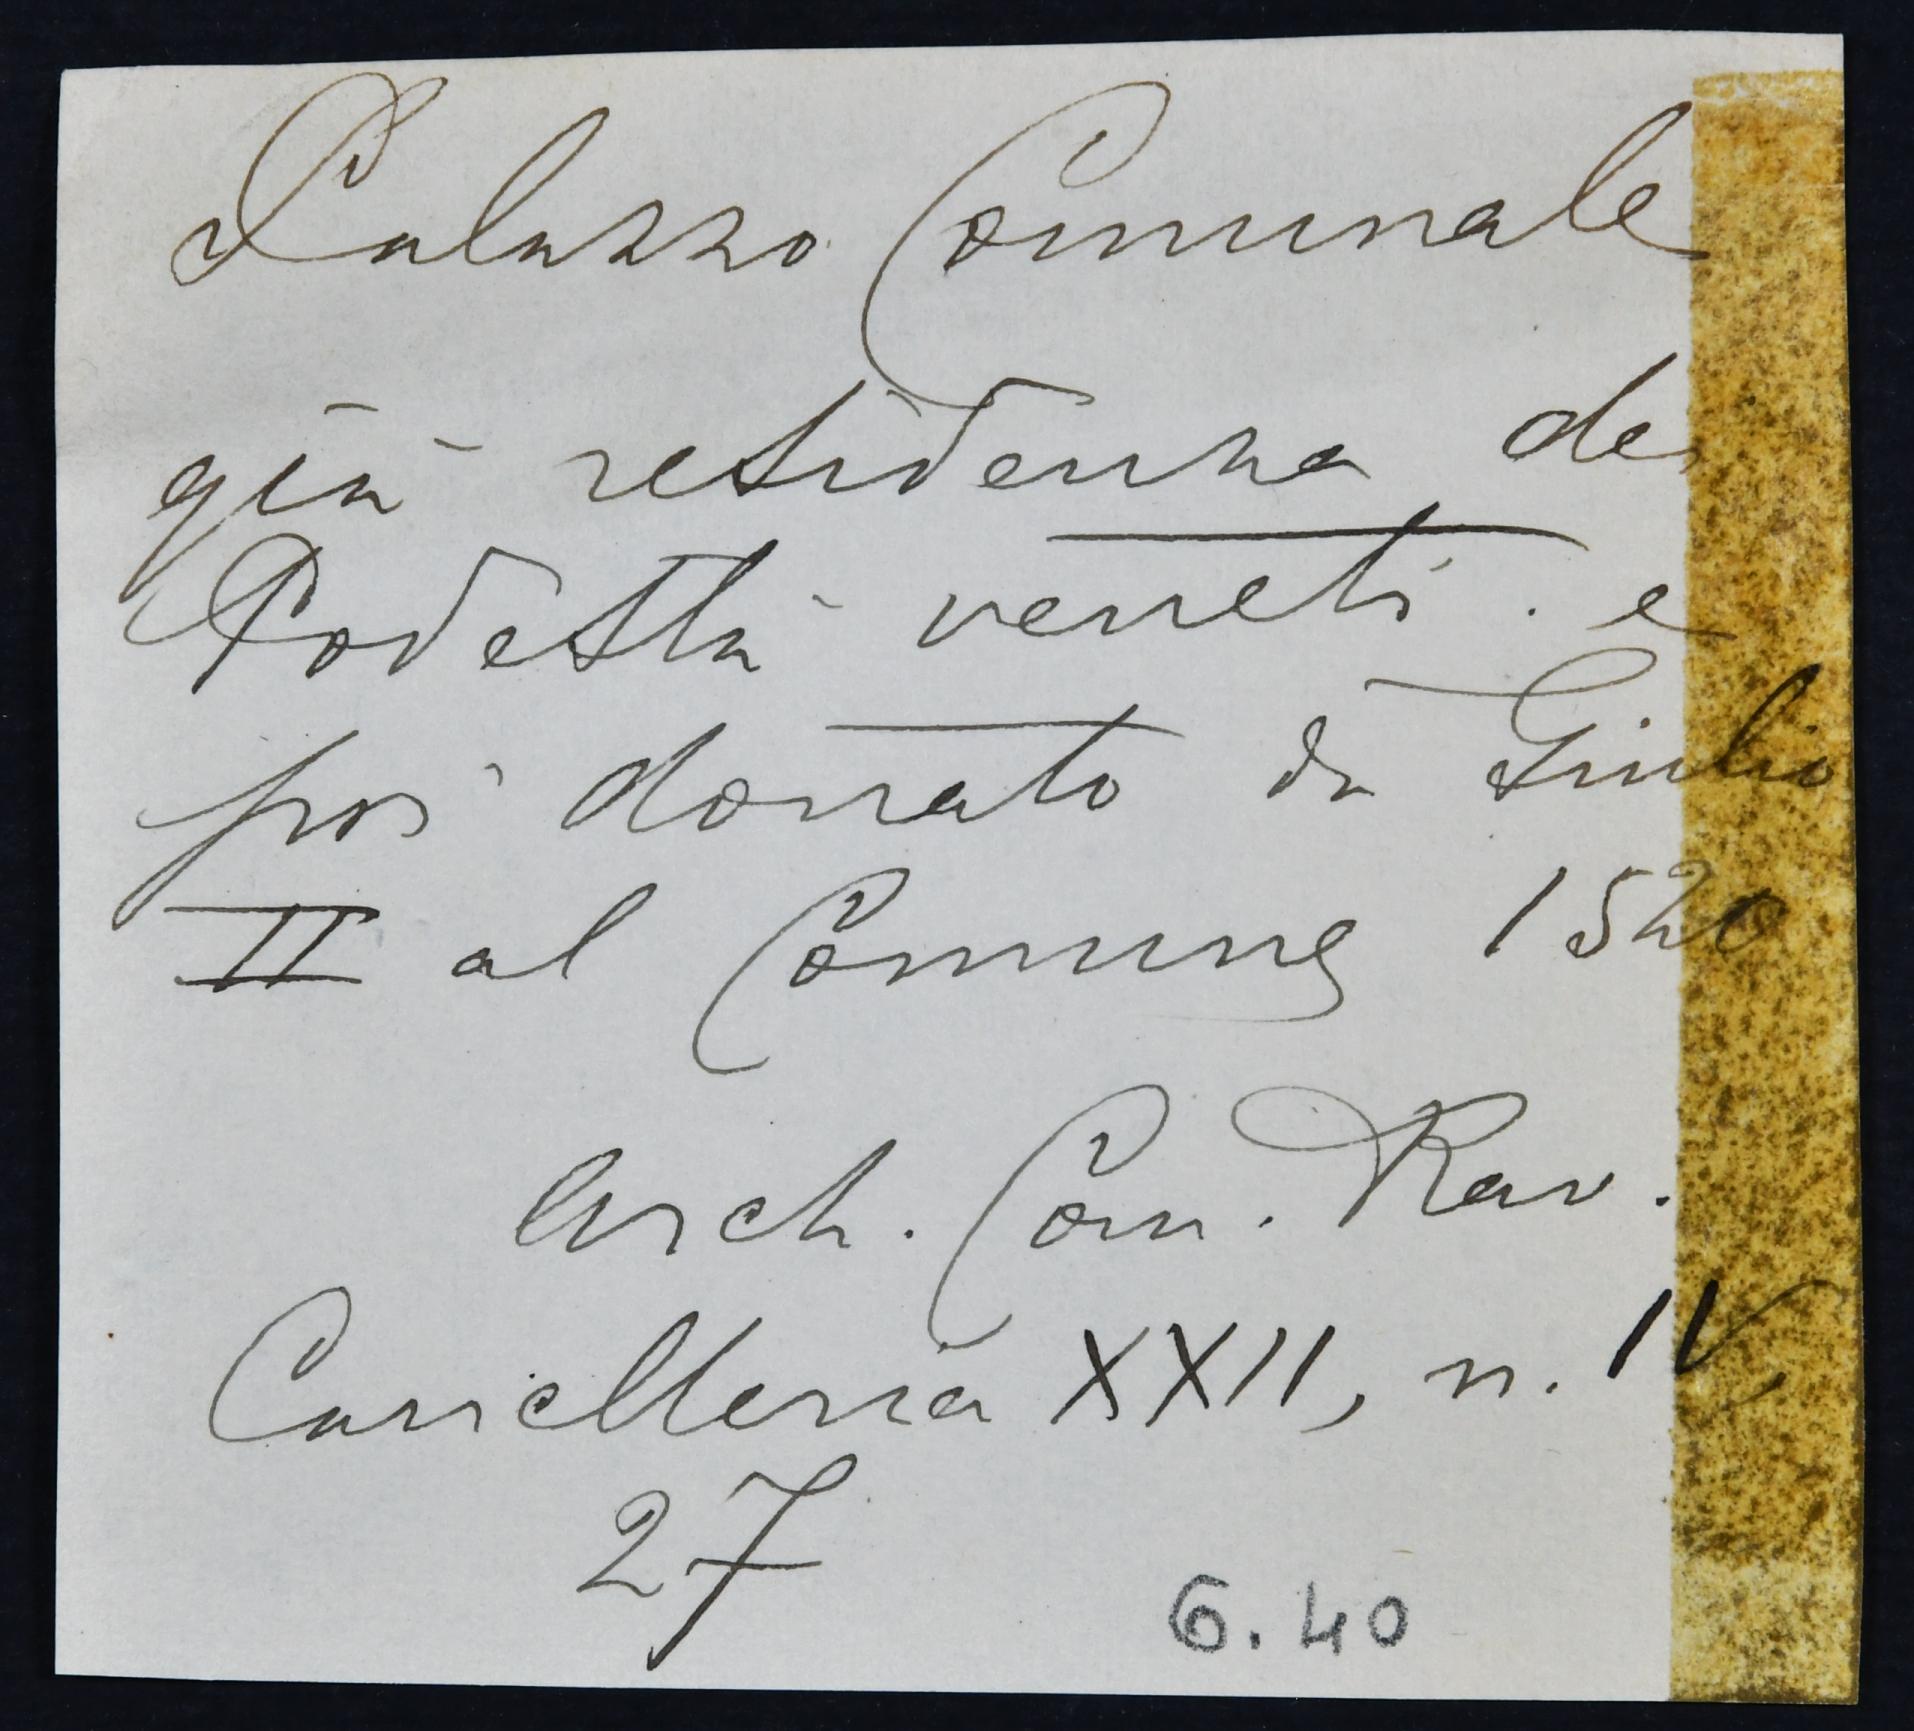 Palazzo Comunale
già residenza dei
Podestà veneti e
poi donato da Giulio
II al Comune 1520
Arch. Com. Rav.
Cancelleria XXII, n. IV,
27
6.40